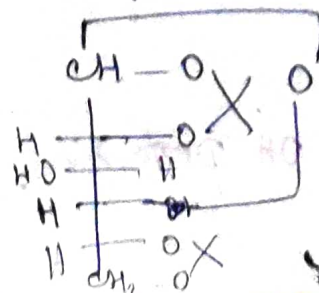 CH — O O
H O
HO H
H
H O
CH₂ O